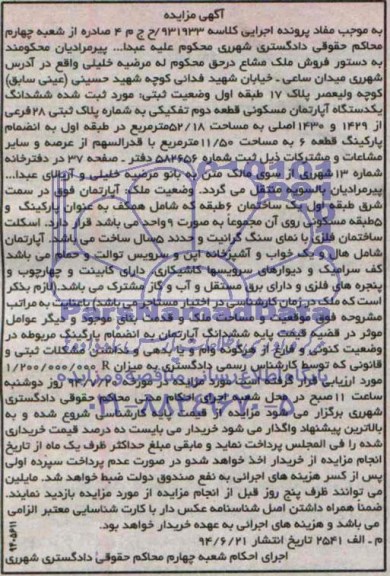 آگهی مزایده
به موجب مفاد پرونده اجرایی کلاسه ۹۳۱۹۳۳/ح ج م ۴ صادره از شعبه چهارم
محاکم حقوقی دادگستری شهرری محکوم علیه عبدا... پیرمرادیان محکومند
به دستور فروش ملک مشاع درحق محکوم له مرضیه خلیلی واقع در آدرس
شهرری میدان ساعی ـ خیابان شهید فدائی کوچه شهید حسینی (عینی سابق)
کوچه ولیعصر پلاک ۱۷ طبقه اول وضعیت ثبتی: مورد ثبت شده ششدانگ
یکدستگاه آپارتمان مسکونی قطعه دوم تفکیکی به شماره پلاک ثبتی ۲۸فرعی
از ۱۴۲۹ و ۱۴۳۰ اصلی به مساحت ۵۲/۱۸مترمربع در طبقه اول به انضمام
پارکینگ قطعه ۶ به مساحت ۱۱/۵۰مترمربع با قدرالسهم از عرصه و سایر
مشاعات و مشترکات ذیل ثبت شماره ۵۸۲۶۵۶ دفتر ـ صفحه ۳۷ در دفترخانه
شماره ۱۳شهرری از سوی مالک متن به بانو مرضیه خلیلی و آریای عبدا...
پیرمرادیان بالسویه منتقل می گردد. وضعیت ملک: آپارتمان فوق در سمت
شرق طبقه اول یک ساختمان ۶طبقه که شامل همکف به عنوان پارکینگ و
۵طبقه مسکونی روی آن مجموعا به صورت ۹واحد می باشد قرار دارد. اسکلت
ساختمان فلزی با نمای سنگ گرانیت و حدند ۵سال ساخت می باشد. آپارتمان
شامل هال و یک خواب و آشپزخانه اپن و سرویس توالت و حمام می باشد
کف سرامیک و دیوارهای سرویسها کاشیکاری، دارای کابینت و چهارچوب و
پنجره های فلزی و دارای برق مستقل و آب و گاز مشترک می باشد.(لازم بذکر
است که ملک در زمان کارشناسی در اختیار مستاجر می باشد) باعنایت به مراتب
مشروحه فوق موقعیت و مساحت ملک و قدمت بنای موجود و دیگر عوامل
موثر در قضیه قیمت پایه ششدانگ آپارتمان به انضمام پارکینگ مربوطه در
وضعیت کنونی و فارغ از هرگونه وام و یا بدهی و نداشتن مشکلات ثبتی و
قانونی که توسط کارشناس رسمی دادگستری به میزان ۱/۲۰۰/۰۰۰/۰۰۰ R
مورد ارزیابی قرار گرفته است مورد مزایده در مورخه روز دوشنبه
ساعت ۱۱صبح در محل شعبه اجرای احکام مدنی محاکم حقوقی دادگستری
شهرری برگزار می شود مزایده از قیمت پایه کارشناسی شروع شده و به
بالاترین پیشنهاد واگذار می شود خریدار می بایست ده درصد قیمت خریداری
شده را فی المجلس پرداخت نماید و مابقی مبلغ حداکثر ظرف یک ماه از تاریخ
انجام مزایده از خریدار اخذ خواهد شدو در صورت عدم پرداخت سپرده اولی
پس از کسر هزینه های اجرائی به نفع صندوق دولت ضبط خواهد شد. مایلین
می توانند ظرف پنج روز قبل از انجام مزایده از مورد مزایده بازدید نمایند.
ضمنا همراه داشتن اصل شناسنامه عکس دار یا کارت شناسایی معتبر الزامی
می باشد و هزینه های اجرائی به عهده خریدار خواهد بود.
م ـ الف ۲۵۴۱ تاریخ انتشار ۹۴/۶/۲۱
اجرای احکام شعبه چهارم محاکم حقوقی دادگستری شهرری
ParsNamadData